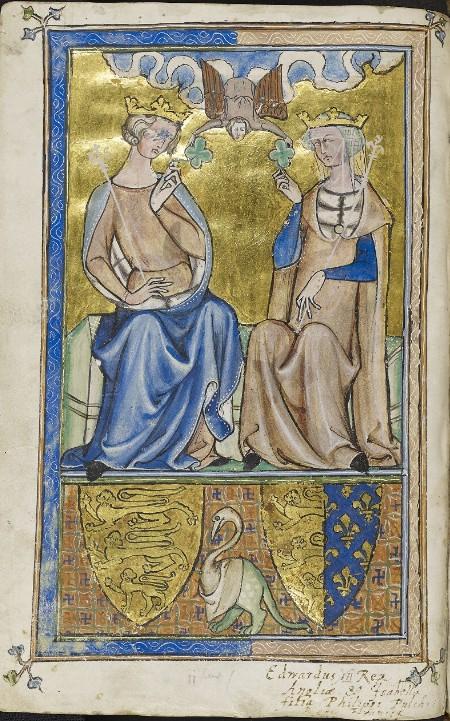 Edwardus iii Rex
Angliæ & Isabella
filia Philippi Pulchri